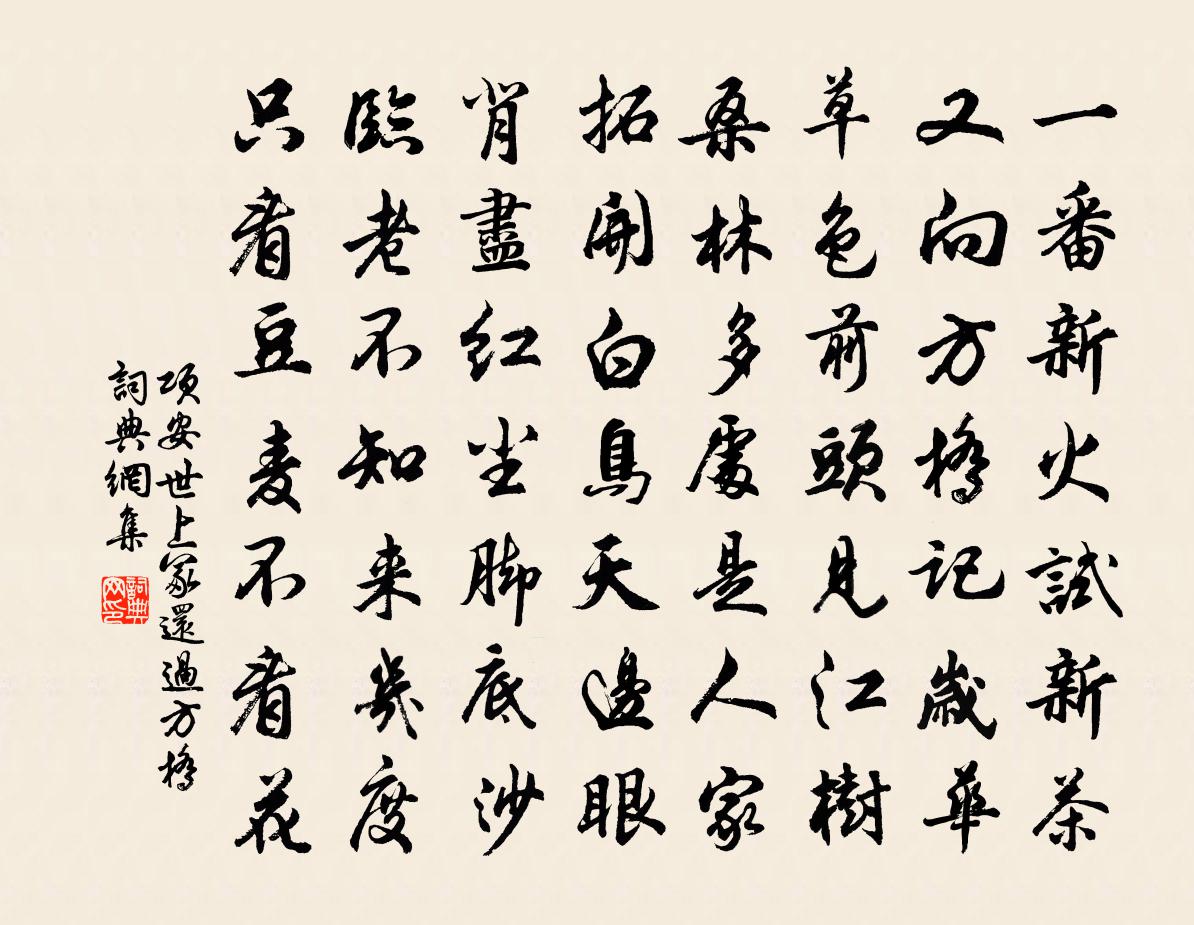 一番新火試新茶
又向方橋記歲華
草色前頭見江樹
桑林多處是人家
拓開白鳥天邊眼
背盡紅塵脚底沙
臨老不知来幾度
只看豆麦不看花
項安世上冢還過方橋
詞典網集
詞典网印